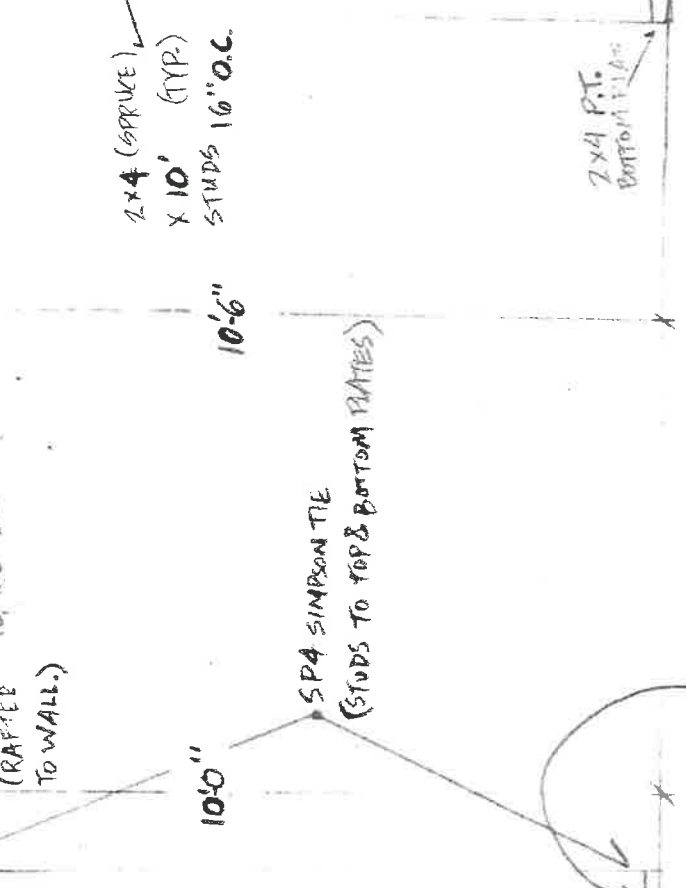 (RAFTER
TO WALL.)
10'0"
SP4 SIMPSON TIE
(STUDS TO TOP & BOTTOM PLATES)
10'-6"
2x4 (SPRUCE)
x 10' (TYP.)
STUDS 16" O.C.
2x4 P.T.
BOTTOM PLATE